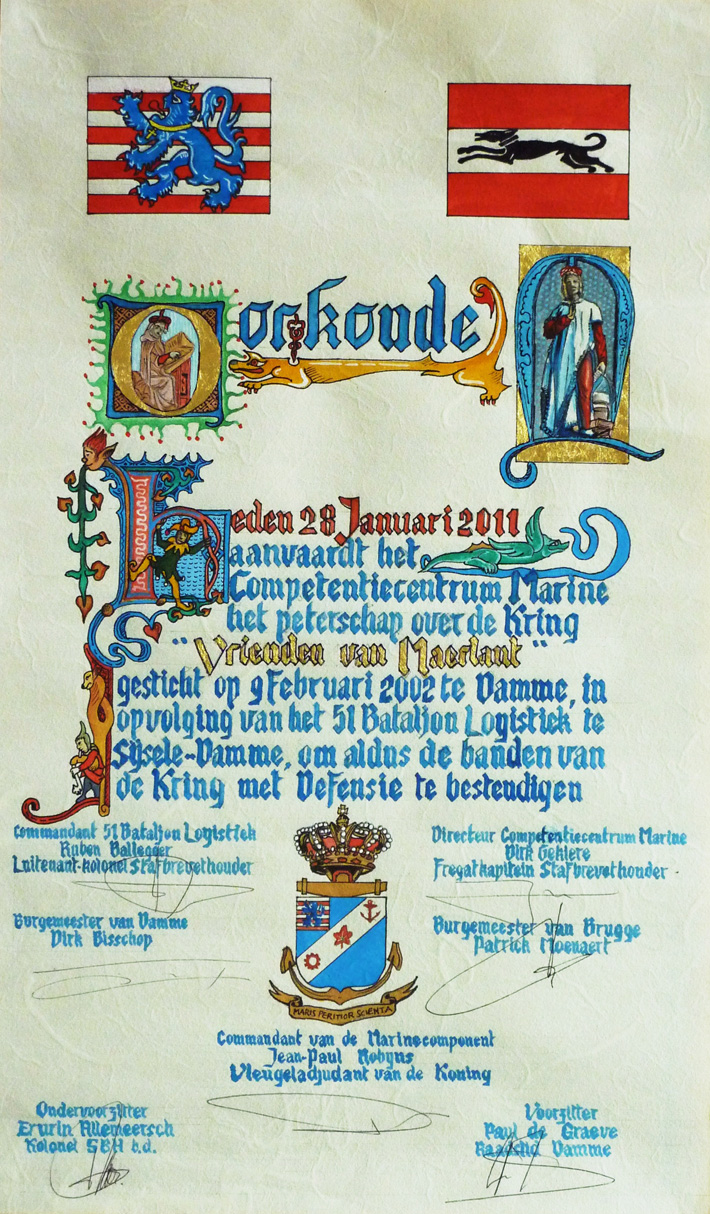 Oorkonde
Heden 28 Januari 2011
aanvaardt het
Competentiecentrum Marine
het peterschap over de Kring
"Vrienden van Maerlant"
gesticht op 9 Februari 2002 te Damme, in
opvolging van het 51 Bataljon Logistiek te
Sijsele-Damme, om aldus de banden van
de Kring met Defensie te bestendigen
Commandant 51 Bataljon Logistiek
Ruben Ballegger
Luitenant-kolonel Stafbrevethouder
Directeur Competentiecentrum Marine
Dirk Gekiere
Fregatkapitein Stafbrevethouder
Burgemeester van Damme
Dirk Bisschop
Burgemeester van Brugge
Patrick Moenaert
MARIS PERITIOR SCIENTA
Commandant van de Marinecomponent
Jean-Paul Robyns
Vleugeladjudant van de Koning
Ondervoorzitter
Erwin Allemeersch
Kolonel SBH b.d.
Voorzitter
Paul de Graeve
Damme